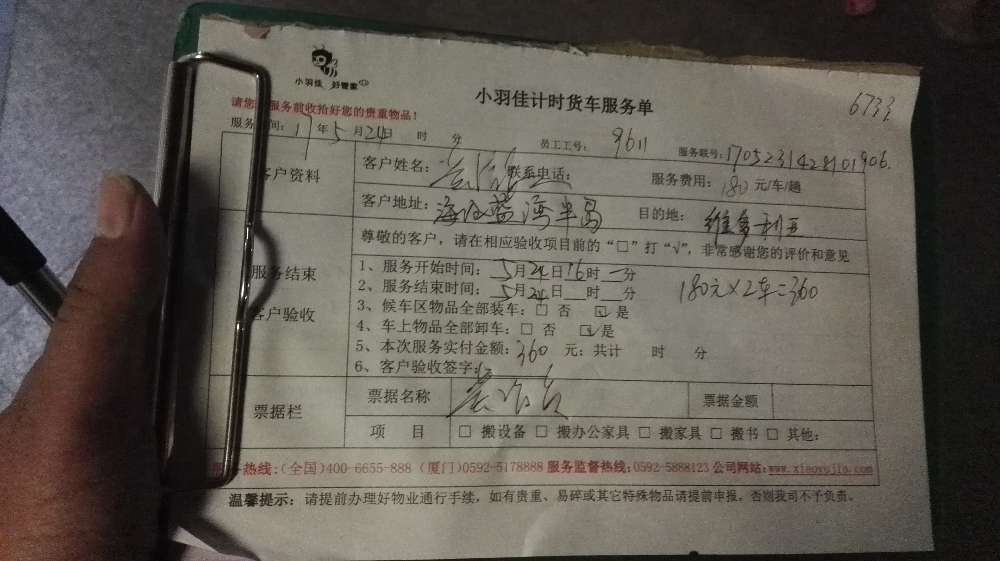 小羽佳 好管家
小羽佳计时货车服务单
6733
请您 服务前收拾好您的贵重物品!
服务 间: 17年5月24日 时 分 员工工号: 9611 服务联号: 1705231428101906.
客户资料
客户姓名: 联系电话: 服务费用: 180元/车/趟
客户地址: 海沧蓝湾半岛 目的地: 维多利亚
尊敬的客户,请在相应验收项目前的“□”打“√”,非常感谢您的评价和意见
服务结束
客户验收
1、服务开始时间: 5月24日16时 分
180元×2车=360
2、服务结束时间: 5月24日 时 分
3、候车区物品全部装车: □ 否 ☑ 是
4、车上物品全部卸车: □ 否 ☑ 是
5、本次服务实付金额: 360 元: 共计 时 分
6、客户验收签字:
票据栏
票据名称 票据金额
项 目 □ 搬设备 □ 搬办公家具 □ 搬家具 □ 搬书 □ 其他:
热线:(全国)400-6655-888 (厦门)0592-5178888 服务监督热线:0592-5888123 公司网站:www.xiaoyujia.com
温馨提示: 请提前办理好物业通行手续,如有贵重、易碎或其它特殊物品请提前申报,否则我司不予负责。